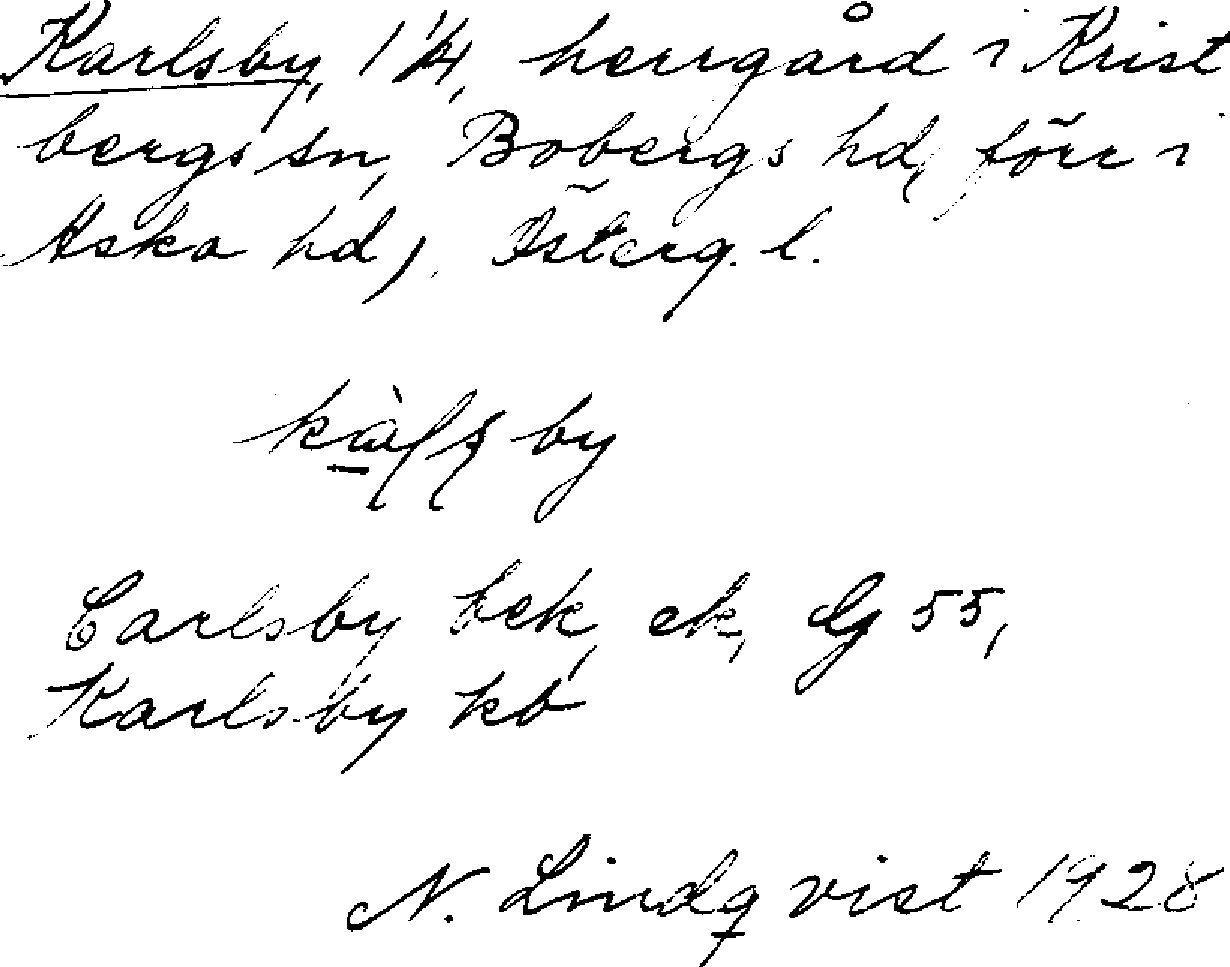 Karlsby, 1 1/4, herrgård i Krist
bergs sn, Bobergs hd, förr i
Aska hd), Österg. l.
by
Carlsby bek, ek, Gg 55,
Karlsby kb
N. Lindqvist 1928